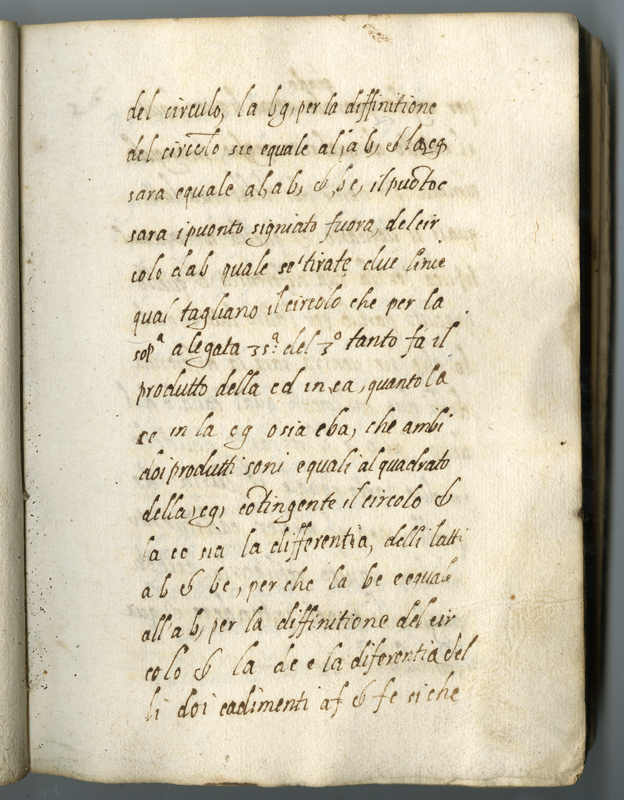 del circulo, la bg, per la diffinitione
del circolo sie equale al, a b, & la, cg,
sara equale al, a b, &, b c, il puõto c
sara i puonto signiato fuora, del cir
colo dab quale se' tirate due linie
qual tagliano il circolo che per la
sopª alegata 35ª del 3º tanto fa il
produtto della cd in, ca, quanto la
ce in la cg o sia cba, che ambi
doi produtti soni equali al quadrato
della, cg, cõtingente il circolo &
la ec sia la differentia, delli latti
a b & bc, per che la be e equale
all'a b, per la diffinitione del cir
colo & la dc e la diferentia del
li doi cadimenti af & fc si che